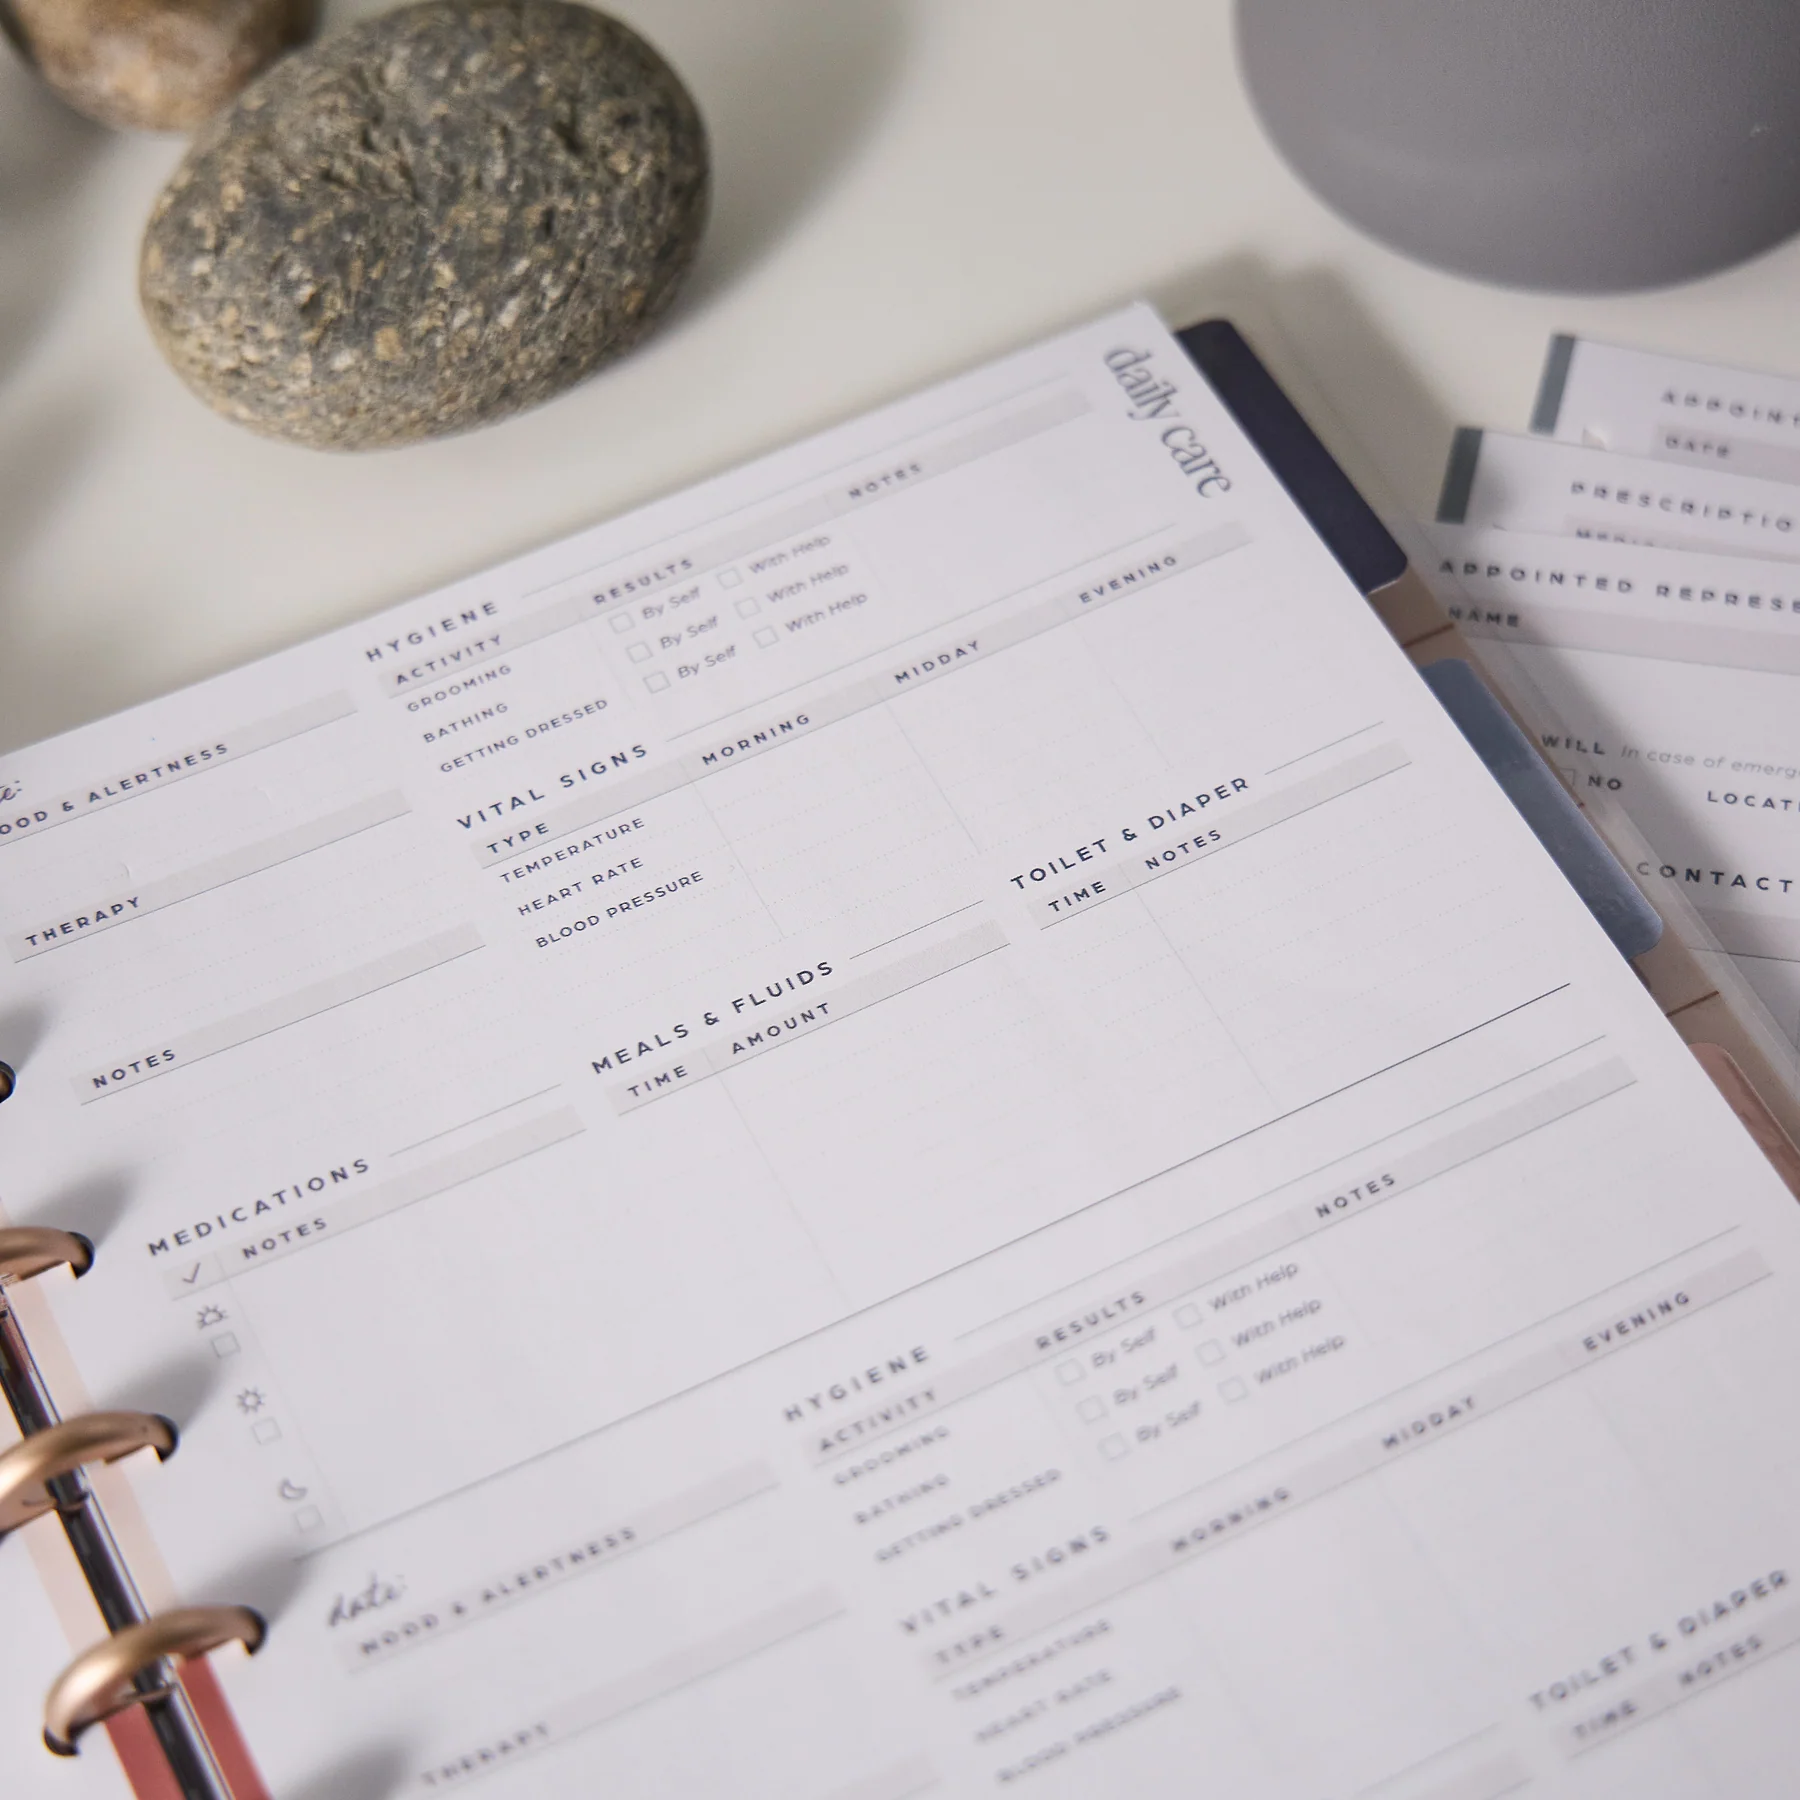 daily care
HYGIENE
ACTIVITY RESULTS NOTES
GROOMING By Self With Help
BATHING By Self With Help
GETTING DRESSED By Self With Help
VITAL SIGNS
TYPE MORNING MIDDAY EVENING
TEMPERATURE
HEART RATE
BLOOD PRESSURE
& ALERTNESS
THERAPY
NOTES
MEALS & FLUIDS
TIME AMOUNT
TOILET & DIAPER
TIME NOTES
MEDICATIONS
NOTES
HYGIENE
ACTIVITY RESULTS NOTES
GROOMING By Self With Help
BATHING By Self With Help
GETTING DRESSED By Self With Help
VITAL SIGNS
TYPE MORNING MIDDAY EVENING
TEMPERATURE
HEART RATE
BLOOD PRESSURE
date:
MOOD & ALERTNESS
THERAPY
TOILET & DIAPER
TIME NOTES
DATE
APPOINTED
NAME
WILL In case of
NO
CONTACT